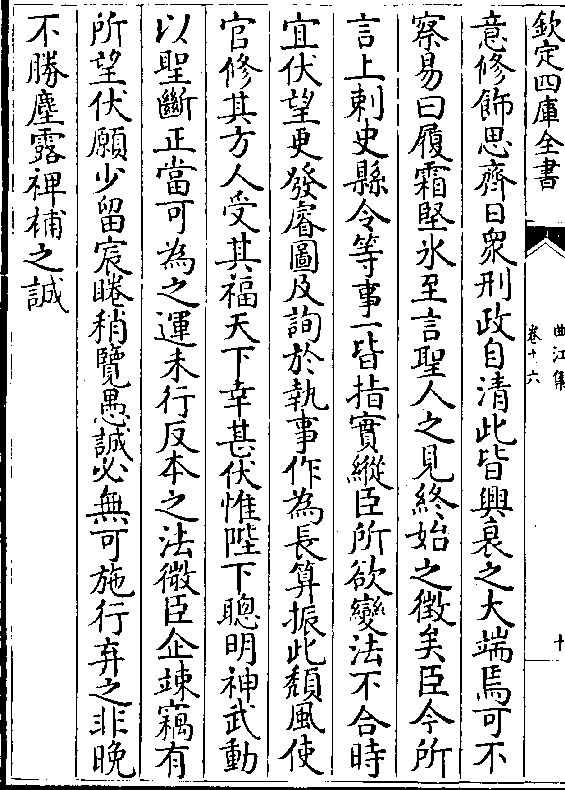 欽定四庫全書
曲江集
卷十六
十
意修飾思齊日衆刑政自清此皆興衰之大端焉可不
察易曰履霜堅氷至言聖人之見終始之徵矣臣今所
言上刺史縣令等事一皆指實縱臣所欲變法不合時
宜伏望更發睿圖及詢於執事作為長算振此頽風使
官修其方人受其福天下幸甚伏惟陛下聰明神武動
以聖斷正當可為之運未行反本之法微臣企竦竊有
所望伏願少留宸睠稍覽愚誠必無可施行弃之非晚
不勝塵露裨補之誠